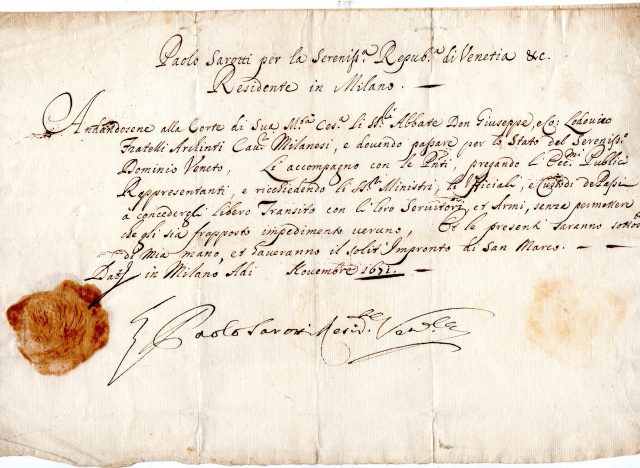 Paolo Sarotti per la Sereniss.ª Repub.ª di Venetia &c.
Residente in Milano. —
Andandosene alla Corte di Sua M.tà Ces.ª li SS.ri Abbate Don Giuseppe, e Lodovico
Fratelli Milanesi, e dovendo passare per lo Stato del Sereniss.º
Dominio Veneto, Li accompagno con le pnti, pregando li Ecc.mi Publici
Rappresentanti, e richiedendo li SS.ri Ministri, et Officiali, e Custodi de Passi
a concedergli libero Transito con li loro Servitori, et Armi, senza permettere
che gli sia frapposto impedimento veruno, Et le presenti saranno sottos.
di mia mano, et haveranno il solit' Impronto di San Marco. —
Dat. in Milano Adi Novembre 1671. —
Paolo Sarotti Resid.te Ven.